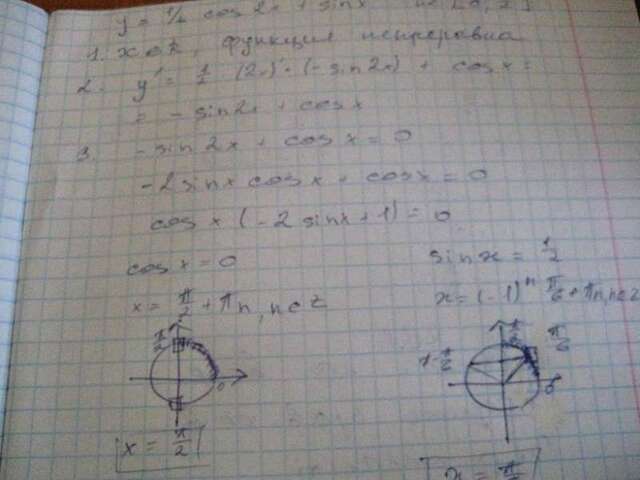 y = ½ cos 2x + sin x на [0;
1. x ∈ R, функция непрерывна
2. y' = 1/2 (2x)' · (-sin 2x) + cos x =
= - sin 2x + cos x
3. - sin 2x + cos x = 0
-2 sin x cos x + cos x = 0
cos x (-2 sin x + 1) = 0
cos x = 0 sin x = 1/2
x = π/2 + πn, n ∈ Z x = (-1)^n π/6 + πn, n ∈ Z
π/2 π/2 π/6
π - π/6
0 0
x = π/2 x = π